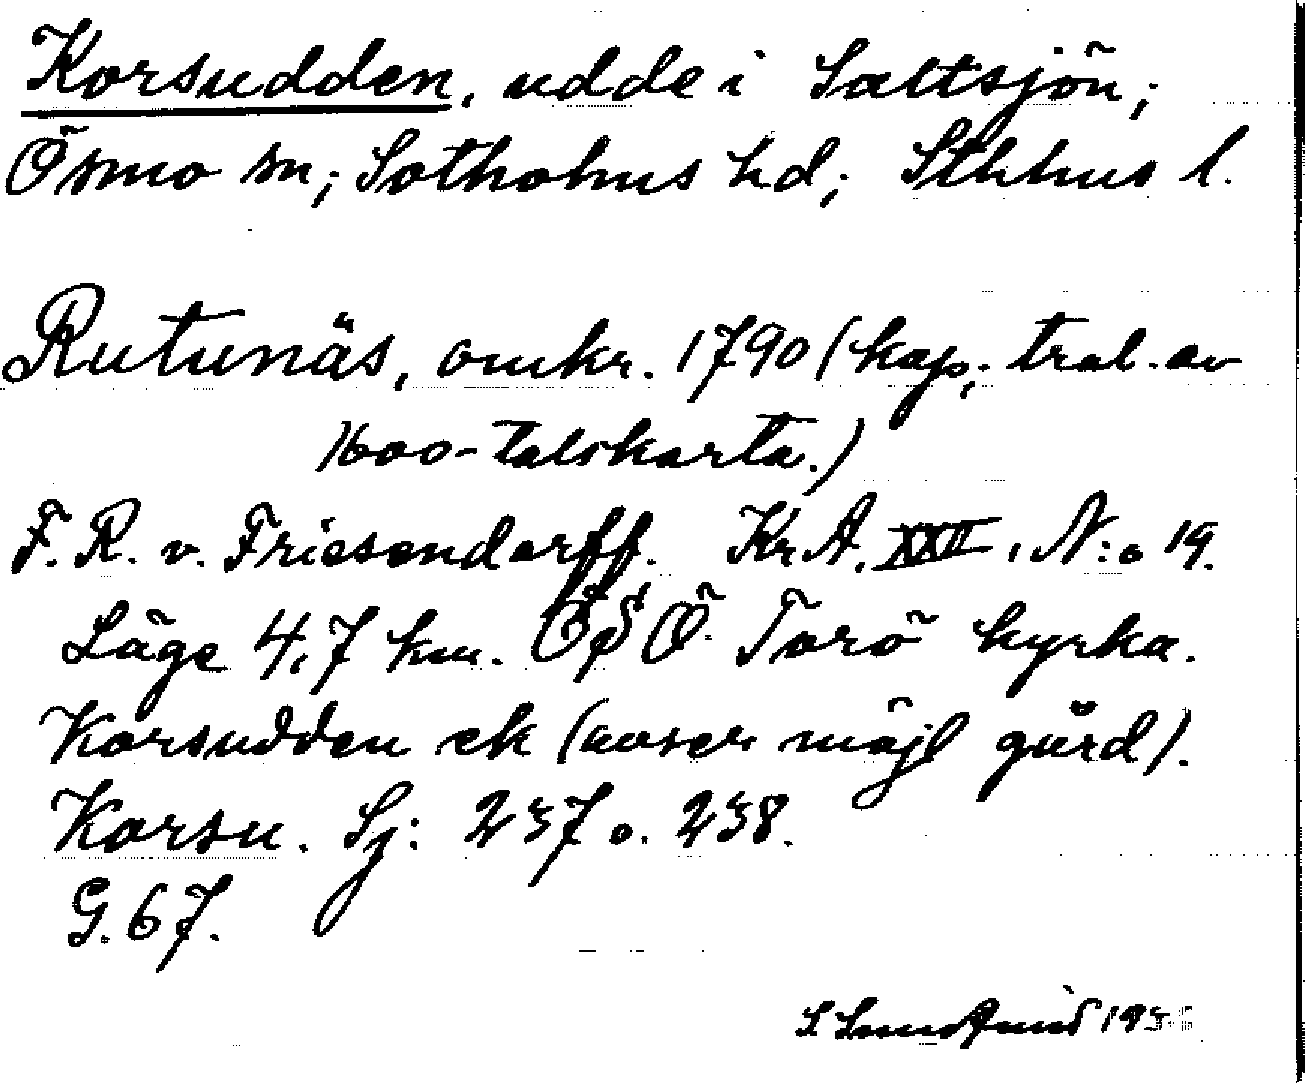 Korsudden, udde i Saltsjön;
Ösmo sn; Sotholms hd; Sthlms l.
Rutunäs, omkr. 1790 (kap; tral. av
1600-talskarta.)
F. R. v. Friesendorff. Kr.A. XXII, N:o 19.
Läge 4,7 km. ÖSÖ Torö kyrka.
Korsudden ek (avser möjl gård).
Korsu. Sj: 237 o. 238.
G. 67.